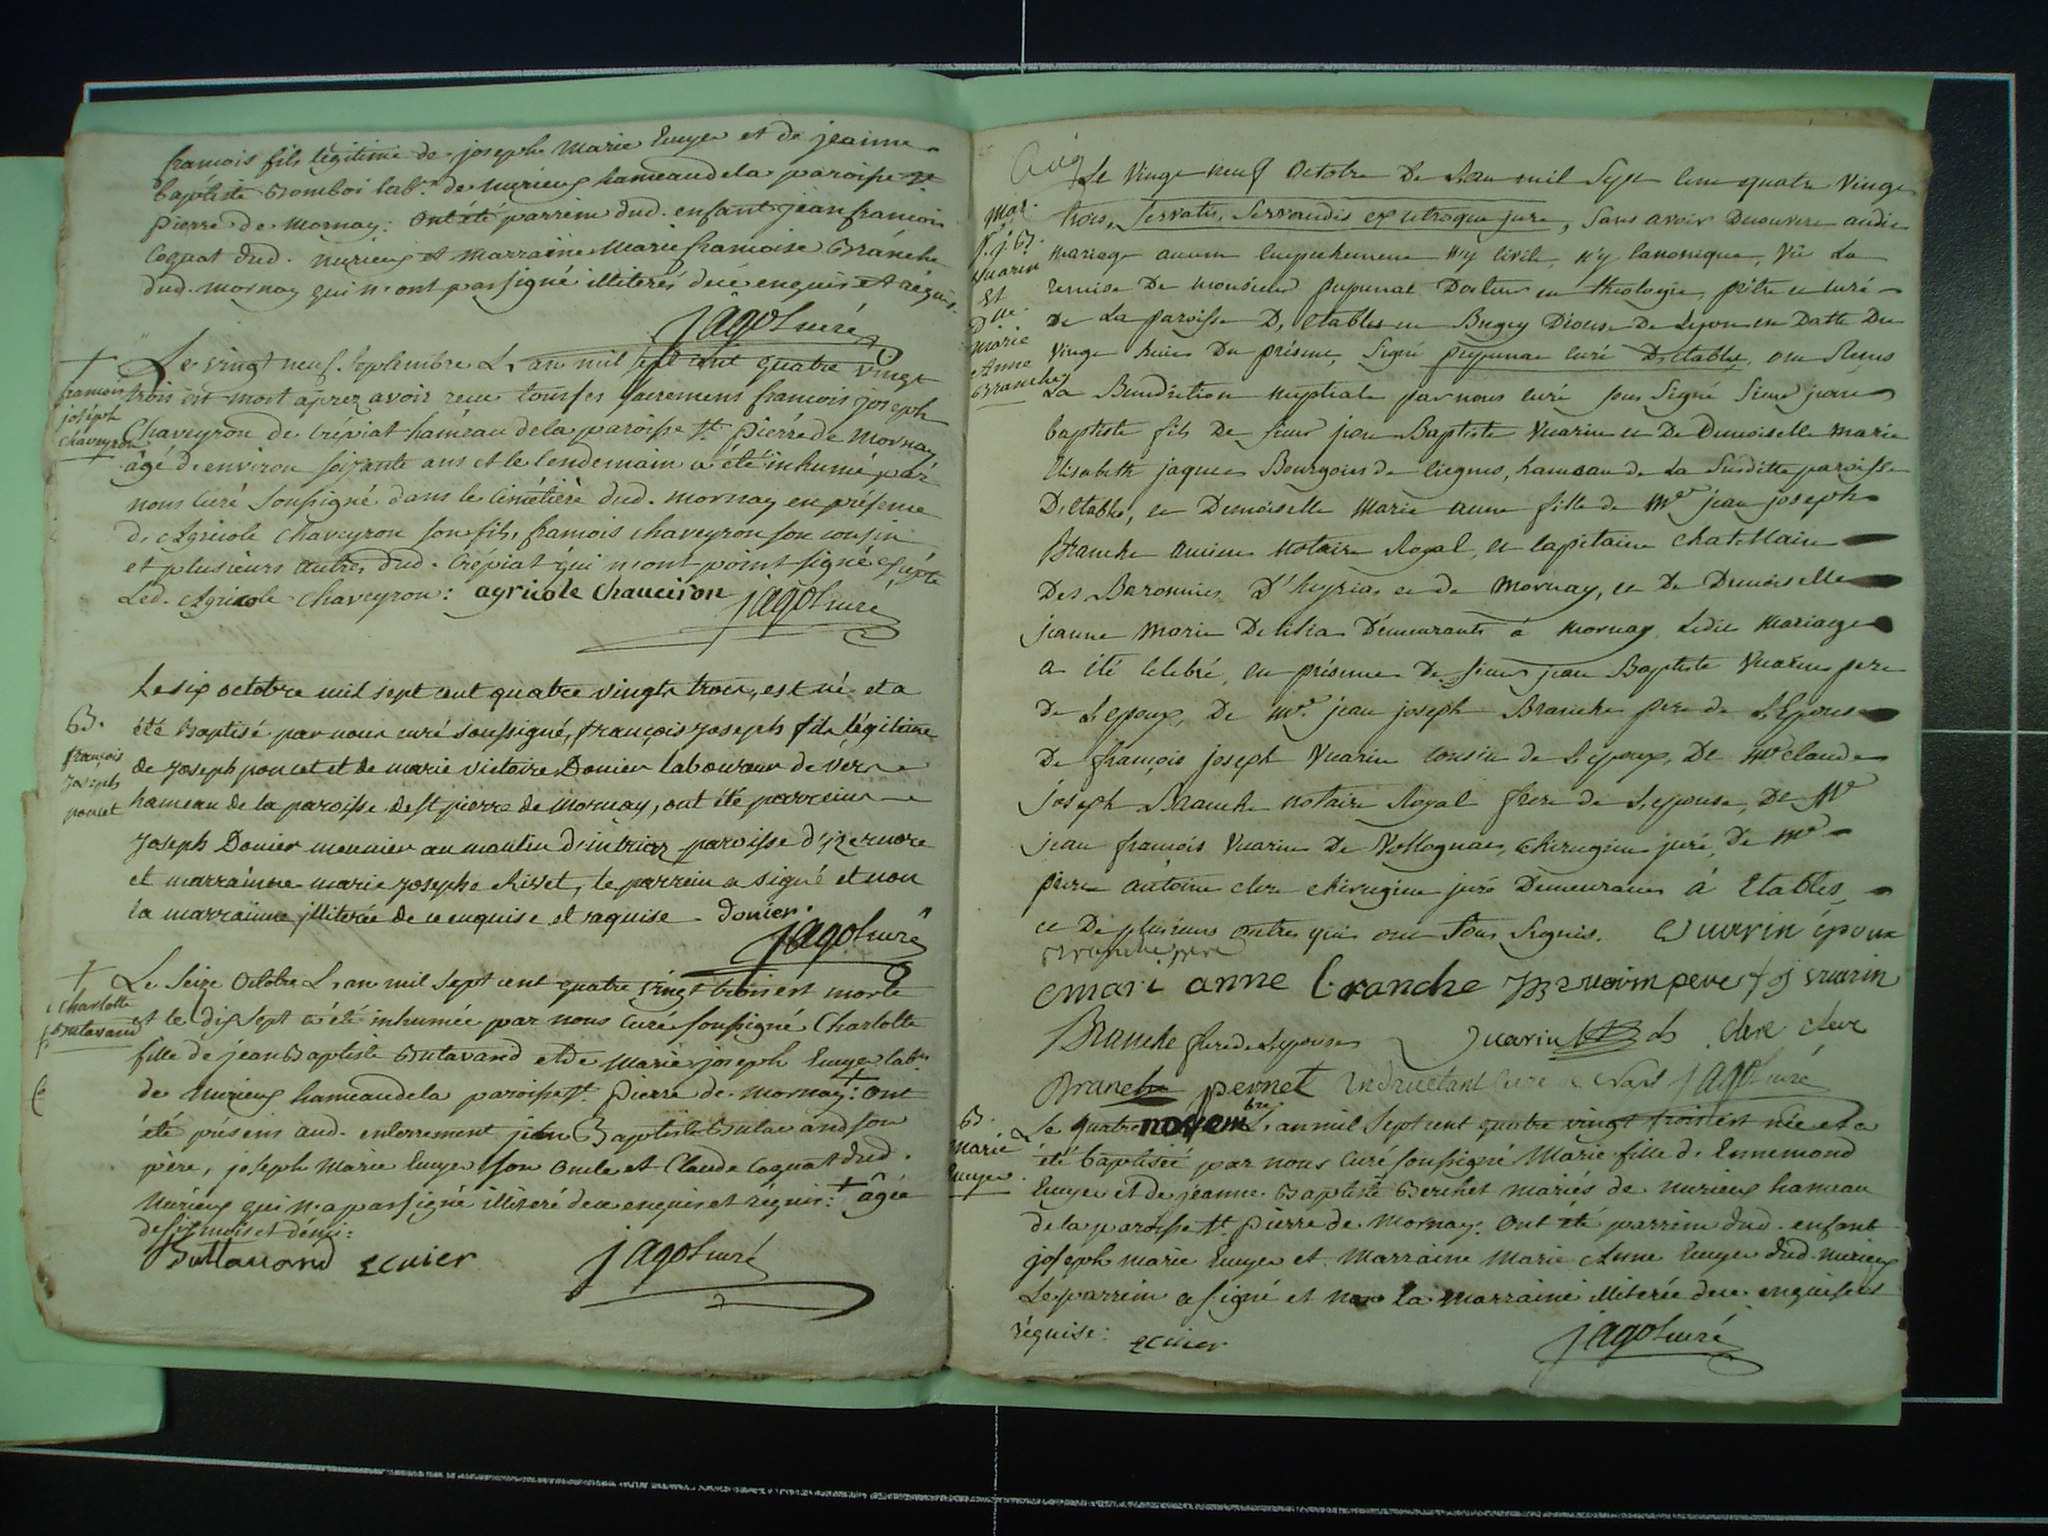 francois fils légitime de joseph Marie Euuyer et de jeanne
baptiste Bomboi labr. de Nurieux hameau de la paroisse St
pierre de Mornay: ont été parrein dud. enfant jean francois
Coquat dud. Nurieux et Marraine Marie francoise Branche
dud. Mornay qui n'ont pas signé illiterés de ce enquis et réquis.
jagot curé
Le vingt neuf Septembre L'an mil sept cent quatre vingt
trois est mort aprez avoir reçu tous ses sacremens francois joseph
Chaveyron de Crépiat hameau de la paroisse St. pierre de Mornay
âgé de environ soixante ans et le lendemain a été inhumé par
nous Curé soussigné dans le Cimétière dud. Mornay en présence
de Agricole Chaveyron son fils, francois chaveyron son cousin
et plusieurs autres dud. Crépiat qui n'ont point signé excepté
Led. Agricole Chaveyron: agricole chaueiron jagot curé
†
francois
joséph
Chaveyron
Le six octobre mil sept cent quatre vingts trois, est né et a
été Baptisé par nous curé soussigné, françois joseph fils légitime
de Joseph poncet et de marie victoire Donier laboureur de vers
hameau de la paroisse de st pierre de Mornay, ont été parrein
Joseph Donier meunier au moulin d'intriaz paroisse d'izernore
et marrainne marie josephe Rivet, le parrein a signé et non
la marrainne illiterée de ce enquise et raquise. Donier.
jagot curé
B.
françois
Joseph
poncet
Le Seize Octobre L'an mil sept cent quatre vingt trois est morte
et le dix sept a été inhumée par nous Curé soussigné Charlotte
fille de jean Baptiste Butavand et de Marie joseph Euuyer labr.
de Nurieux hameau de la paroisse St. pierre de Mornay: † Ont
été présens aud. enterrement jean Baptiste Butavand son
père, joseph Marie Euuyer son Oncle et Claude Coquat dud.
Nurieux qui n'a pas signé illiteré de ce enquis et réquis: † âgée
de six mois et démi:
Buttauand ecuier jagot curé
†
Charlotte
Butavand
Le Vingt neuf Octobre De L'an mil Sept Cent quatre Vingt
trois, Servatis, Servandis ex utroque jure, Sans avoir Decouvert audit
Mariage aucun Empechement N'y Civil, N'y Canonique, Vû La
remise De Monsieur pupunat Docteur en theologie, prêtre et curé
De La paroisse D'Etables en Bugey Diocese De Lyon en Datte Du
Vingt huit Du présent, Signé pupunat curé D'Etables, ont Reçus
La Benediction nuptiale par nous curé sous Signé Sieur jean
baptiste fils De sieur jean Baptiste Vuarin et De Demoiselle marie
Elisabeth jaques Bourgois de Ciegnes, hameau de La Susditte paroisse
D'Etables, et Demoiselle Marie anne fille de Mr jean joseph
Branche ancien Notaire Royal, et Capitaine Chatellain
Des Baronnies D'heyria et de Mornay, et De Demoiselle
jeanne Marie Delilia Démeurants à Mornay, Ledit Mariage
a été Celebré, en présence De sieur jean Baptiste Vuarin pere
De L'epoux, De Mr. jean joseph Branche pere de L'Epouse
De françois joseph Vuarin cousin de L'epoux, De Mr Claude
joseph Branche notaire Royal frere de L'epouse, De Mr
jean françois Vuarin De Vollognat, Chirugien juré, De Mr
pierre antoine clerc chirugien juré Demeurants à Etables
et De plusieurs autres qui ont Sous Signés. Vuarin époux
branche pere
Mari anne branche JB vuarin pere f j vuarin
Branche frere de L'epouse Vuarin clerc
Branche pernet jagot curé
Mar.
Sr. j. B.
Vuarin
Et
Dlle.
Marie
Anne
Branche
Le Quatre novembre L'an mil Sept cent quatre vingt trois est née et a
été baptisée par nous Curé soussigné Marie fille de Ennemond
Euuyer et de jeanne Baptiste Berchet mariés de Nurieux hameau
de la paroisse St. pierre de Mornay: Ont été parrein dud. enfant
joseph marie Euuyer et Marraine Marie Anne Euuyer dud. Nurieux
Le parrein a signé et non la Marraine illiterée de ce enquise et
réquise: ecuier jagot curé
B.
Marie
Euuyer